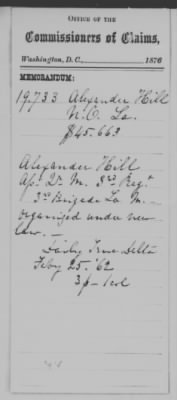 OFFICE OF THE
Commissioners of Claims,
Washington, D. C., 1876
MEMORANDUM:
19.733 Alexander Hill
N.O. La.
$45.663
Alexander Hill
Ap. Q. M. 3rd Reg.t
3rd Brigade La M. —
organized under new
law. —
Daily True Delta
Feby 25. '62
3p — 1 col